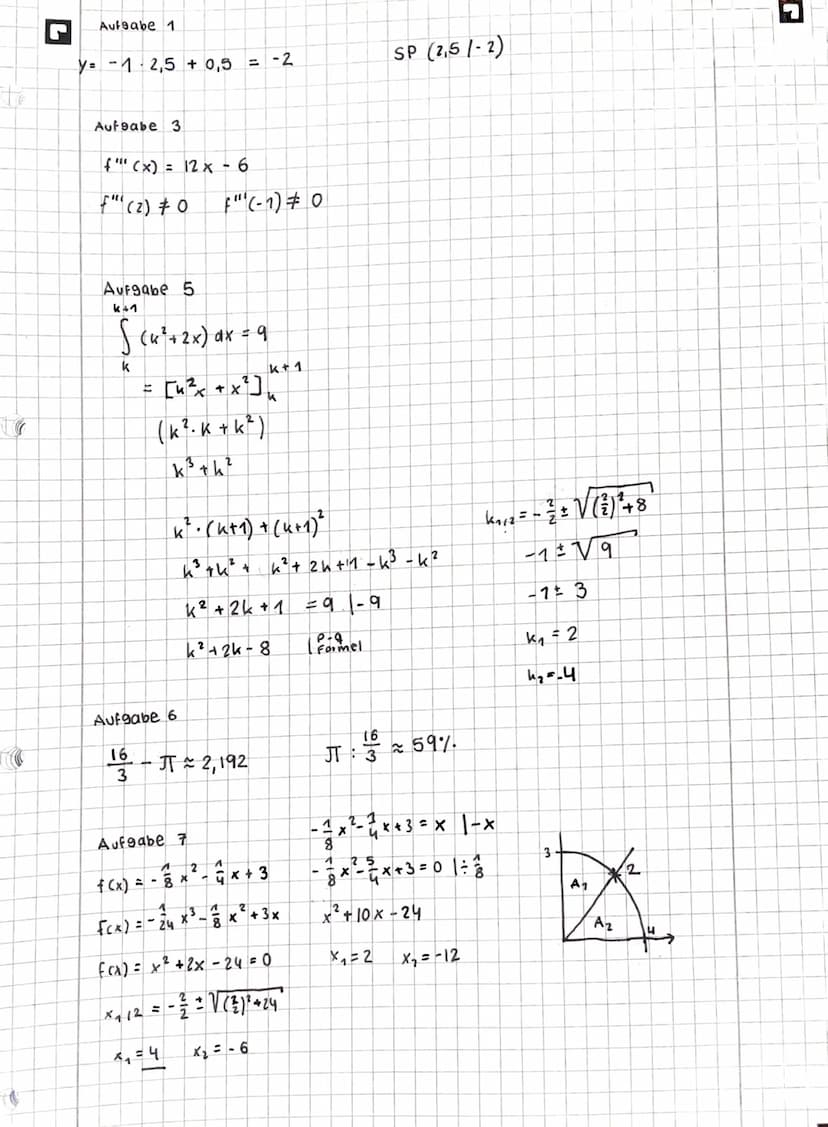 Aufgabe 1
y = -1 · 2,5 + 0,5 = -2
SP (2,5 / -2)
Aufgabe 3
f'''(x) = 12x - 6
f'''(2) ≠ 0 f'''(-1) ≠ 0
Aufgabe 5
k+1
∫ (k²+2x) dx = 9
k
= [k²x + x²] k+1 k
(k² · k + k²)
k³ + k²
k² · (k+1) + (k+1)²
k³ + k² + k² + 2k + 1 - k³ - k²
k² + 2k + 1 = 9 | -9
k² + 2k - 8 | P-q Formel
k1/2 = - 2/2 ± √((2/2)² + 8)
-1 ± √9
-1 ± 3
k₁ = 2
k₂ = -4
Aufgabe 6
16/3 - π ≈ 2,192
π : 16/3 ≈ 59%
Aufgabe 7
f(x) = - 1/8 x² - 1/4 x + 3
f(x) = - 1/24 x³ - 1/8 x² + 3x
f(x) = x² + 2x - 24 = 0
x1/2 = - 2/2 ± √((2/2)² + 24)
x₁ = 4 x₂ = -6
- 1/8 x² - 1/4 x + 3 = x | -x
- 1/8 x² - 5/4 x + 3 = 0 | ÷ 1/8
x² + 10x - 24
x₁ = 2 x₂ = -12
3
2
A₁
A₂
4